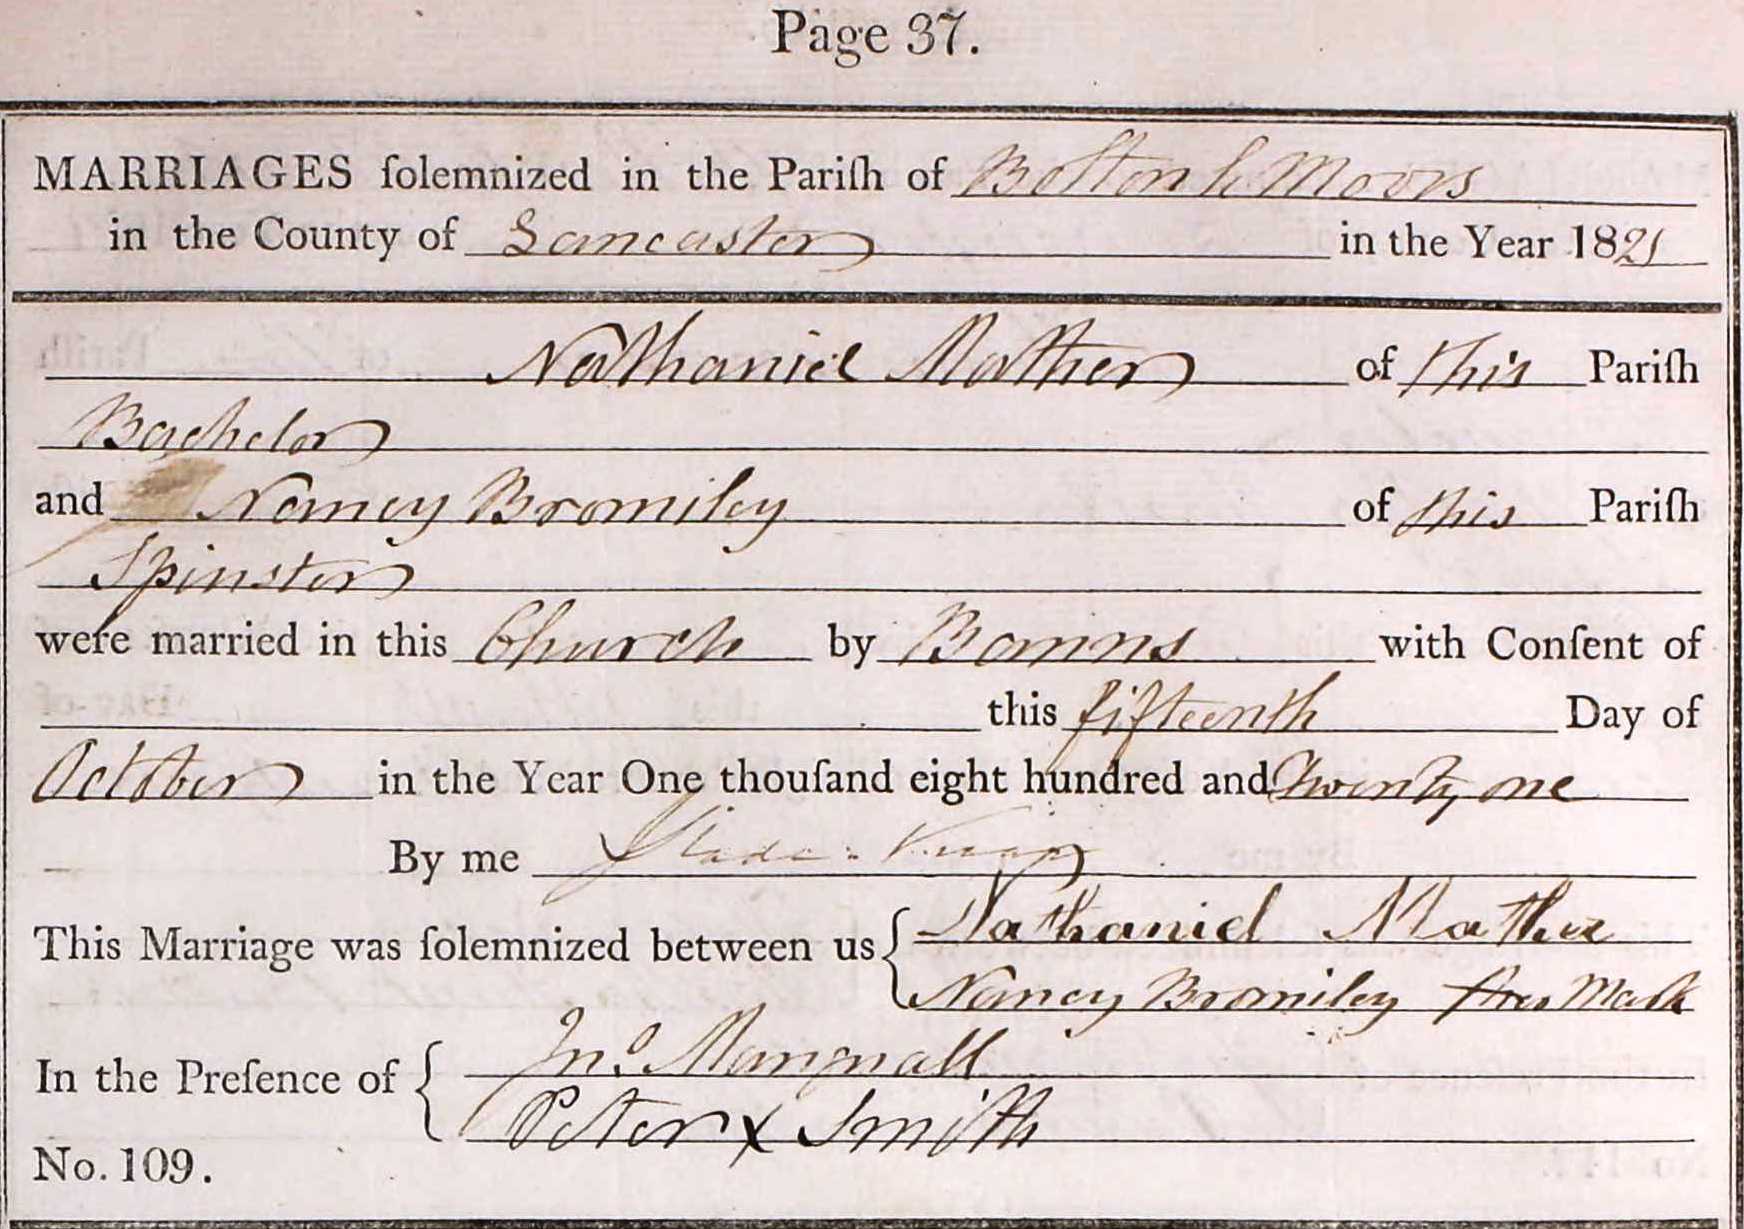 Page 37.
MARRIAGES ſolemnized in the Pariſh of Bolton l Moors
in the County of Lancaster in the Year 1821
Nathaniel Mather of this Pariſh
Bachelor
and Nancy Bromiley of this Pariſh
Spinster
were married in this Church by Banns with Conſent of
this fifteenth Day of
October in the Year One thouſand eight hundred and Twenty one
By me Slade
This Marriage was ſolemnized between us { Nathaniel Mather
Nancy Bromiley her Mark
In the Preſence of { Jno. Mangnall
Peter X Smith
No. 109.